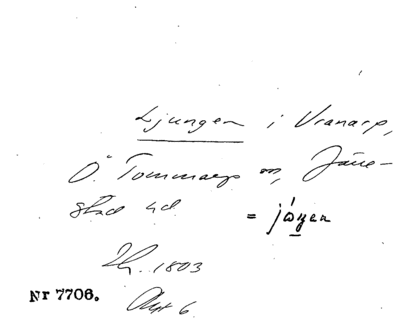 Ljungen i Vranarp,
Ö. Tommarps sn, Järre-
stad hd.
= jåŋen
Lh. 1803
Nr 7706. Akt 6